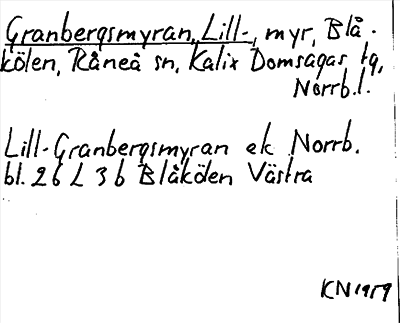 Granbergsmyran, Lill-, myr, Blå-
kölen, Råneå sn, Kalix Domsagas tg,
Norrb.l.
Lill-Granbergsmyran ek Norrb.
bl. 26 L 3 b Blåkölen Västra
KN 1959